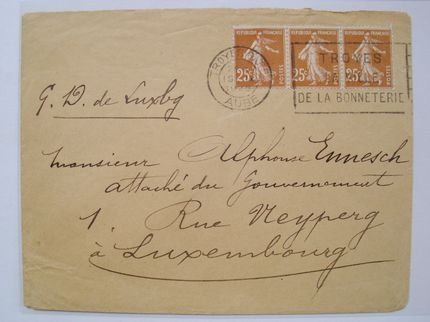 REPUBLIQUE FRANÇAISE REPUBLIQUE FRANÇAISE REPUBLIQUE FRANÇAISE
25c 25c 25c
POSTES POSTES POSTES
TROYES
AUBE
TROYES
DE LA BONNETERIE
G. D. de Luxbg
Monsieur Alphonse Ennesch
attaché du Gouvernement
1. Rue Neyperg
à Luxembourg